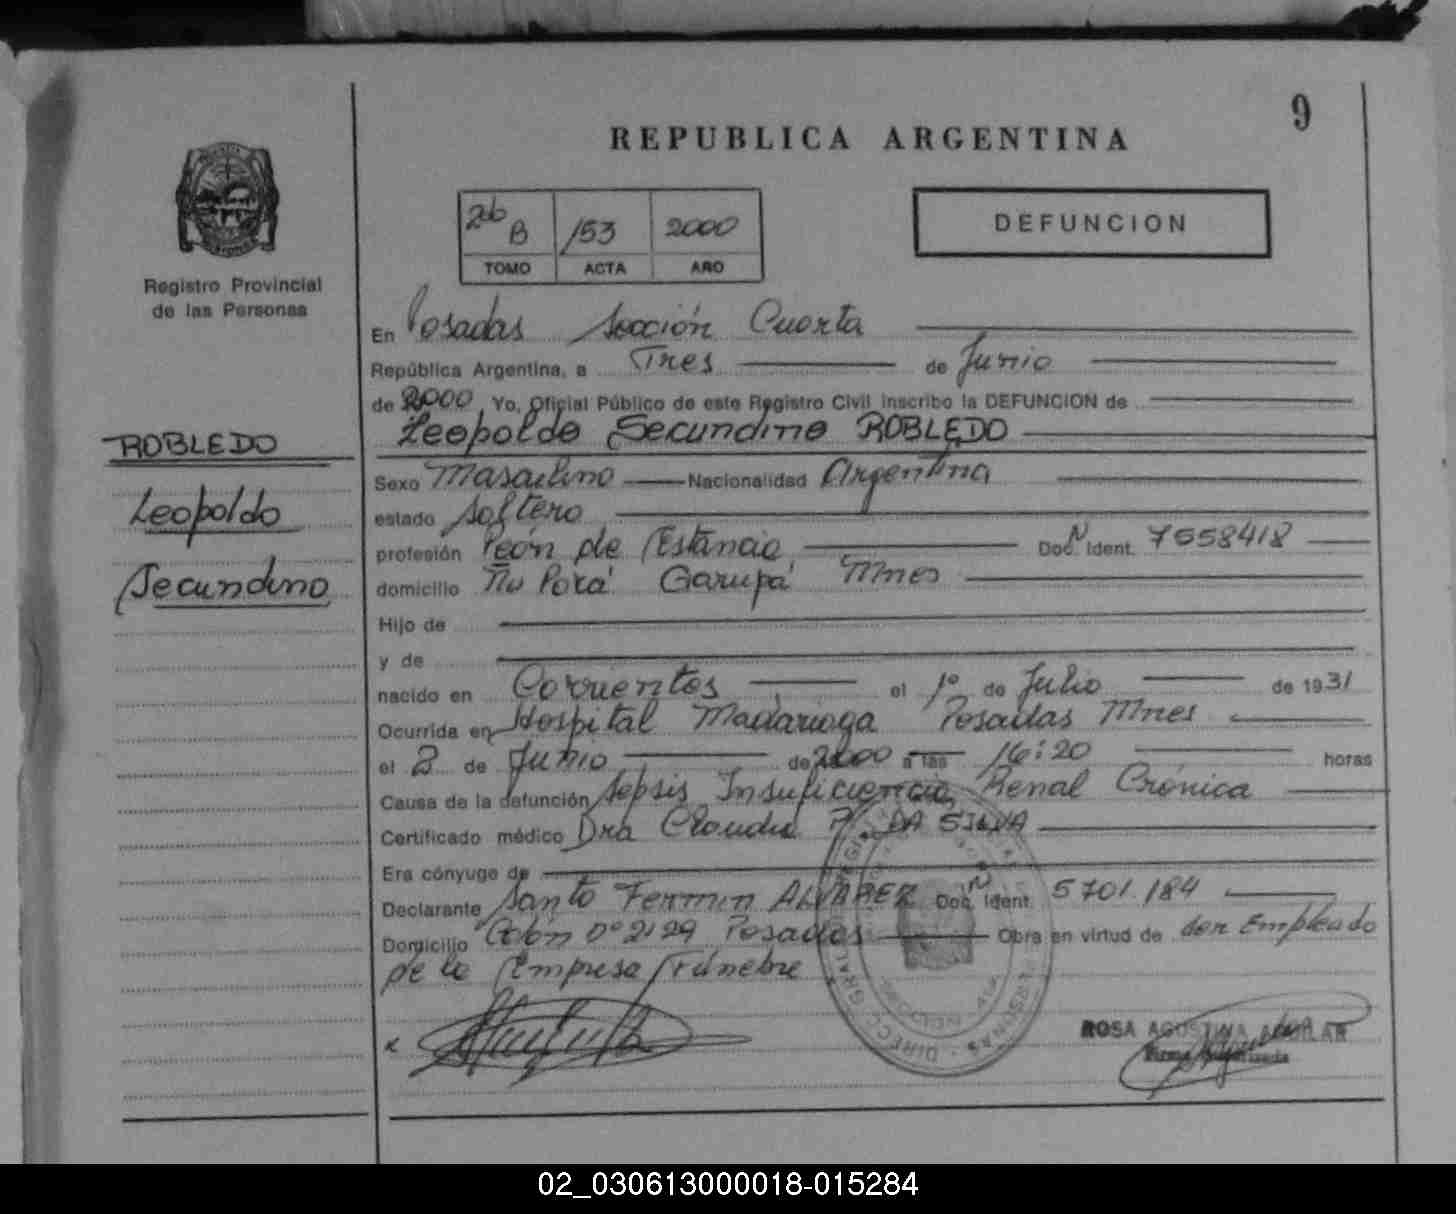 9
REPUBLICA ARGENTINA
2do B /53 2000
TOMO ACTA AÑO
DEFUNCION
Registro Provincial
de las Personas
ROBLEDO
Leopoldo
Secundino
En Posadas Sección Cuarta
República Argentina, a Tres de Junio
de 2000 Yo, Oficial Público de este Registro Civil inscribo la DEFUNCION de
Leopoldo Secundino ROBLEDO
Sexo Masculino Nacionalidad Argentina
estado Soltero
profesión Peón de Estancia Doc. Ident. 7558418
domicilio Ñu Porá Garupá Mnes
Hijo de
y de
nacido en Corrientes el 1º de Julio de 1931
Ocurrida en Hospital Madariaga Posadas Mnes
el 2 de Junio de 2000 a las 16:20 horas
Causa de la defunción Sepsis Insuficiencia Renal Crónica
Certificado médico Dra Claudia P. DA SILVA
Era cónyuge de
Declarante Santo Fermin ALVAREZ Doc. Ident. 5701.184
Domicilio Colón nº 2129 Posadas Obra en virtud de ser Empleado
de la Empresa Fúnebre
ROSA AGUSTINA AGUILAR
Firma Autorizada
02_030613000018-015284